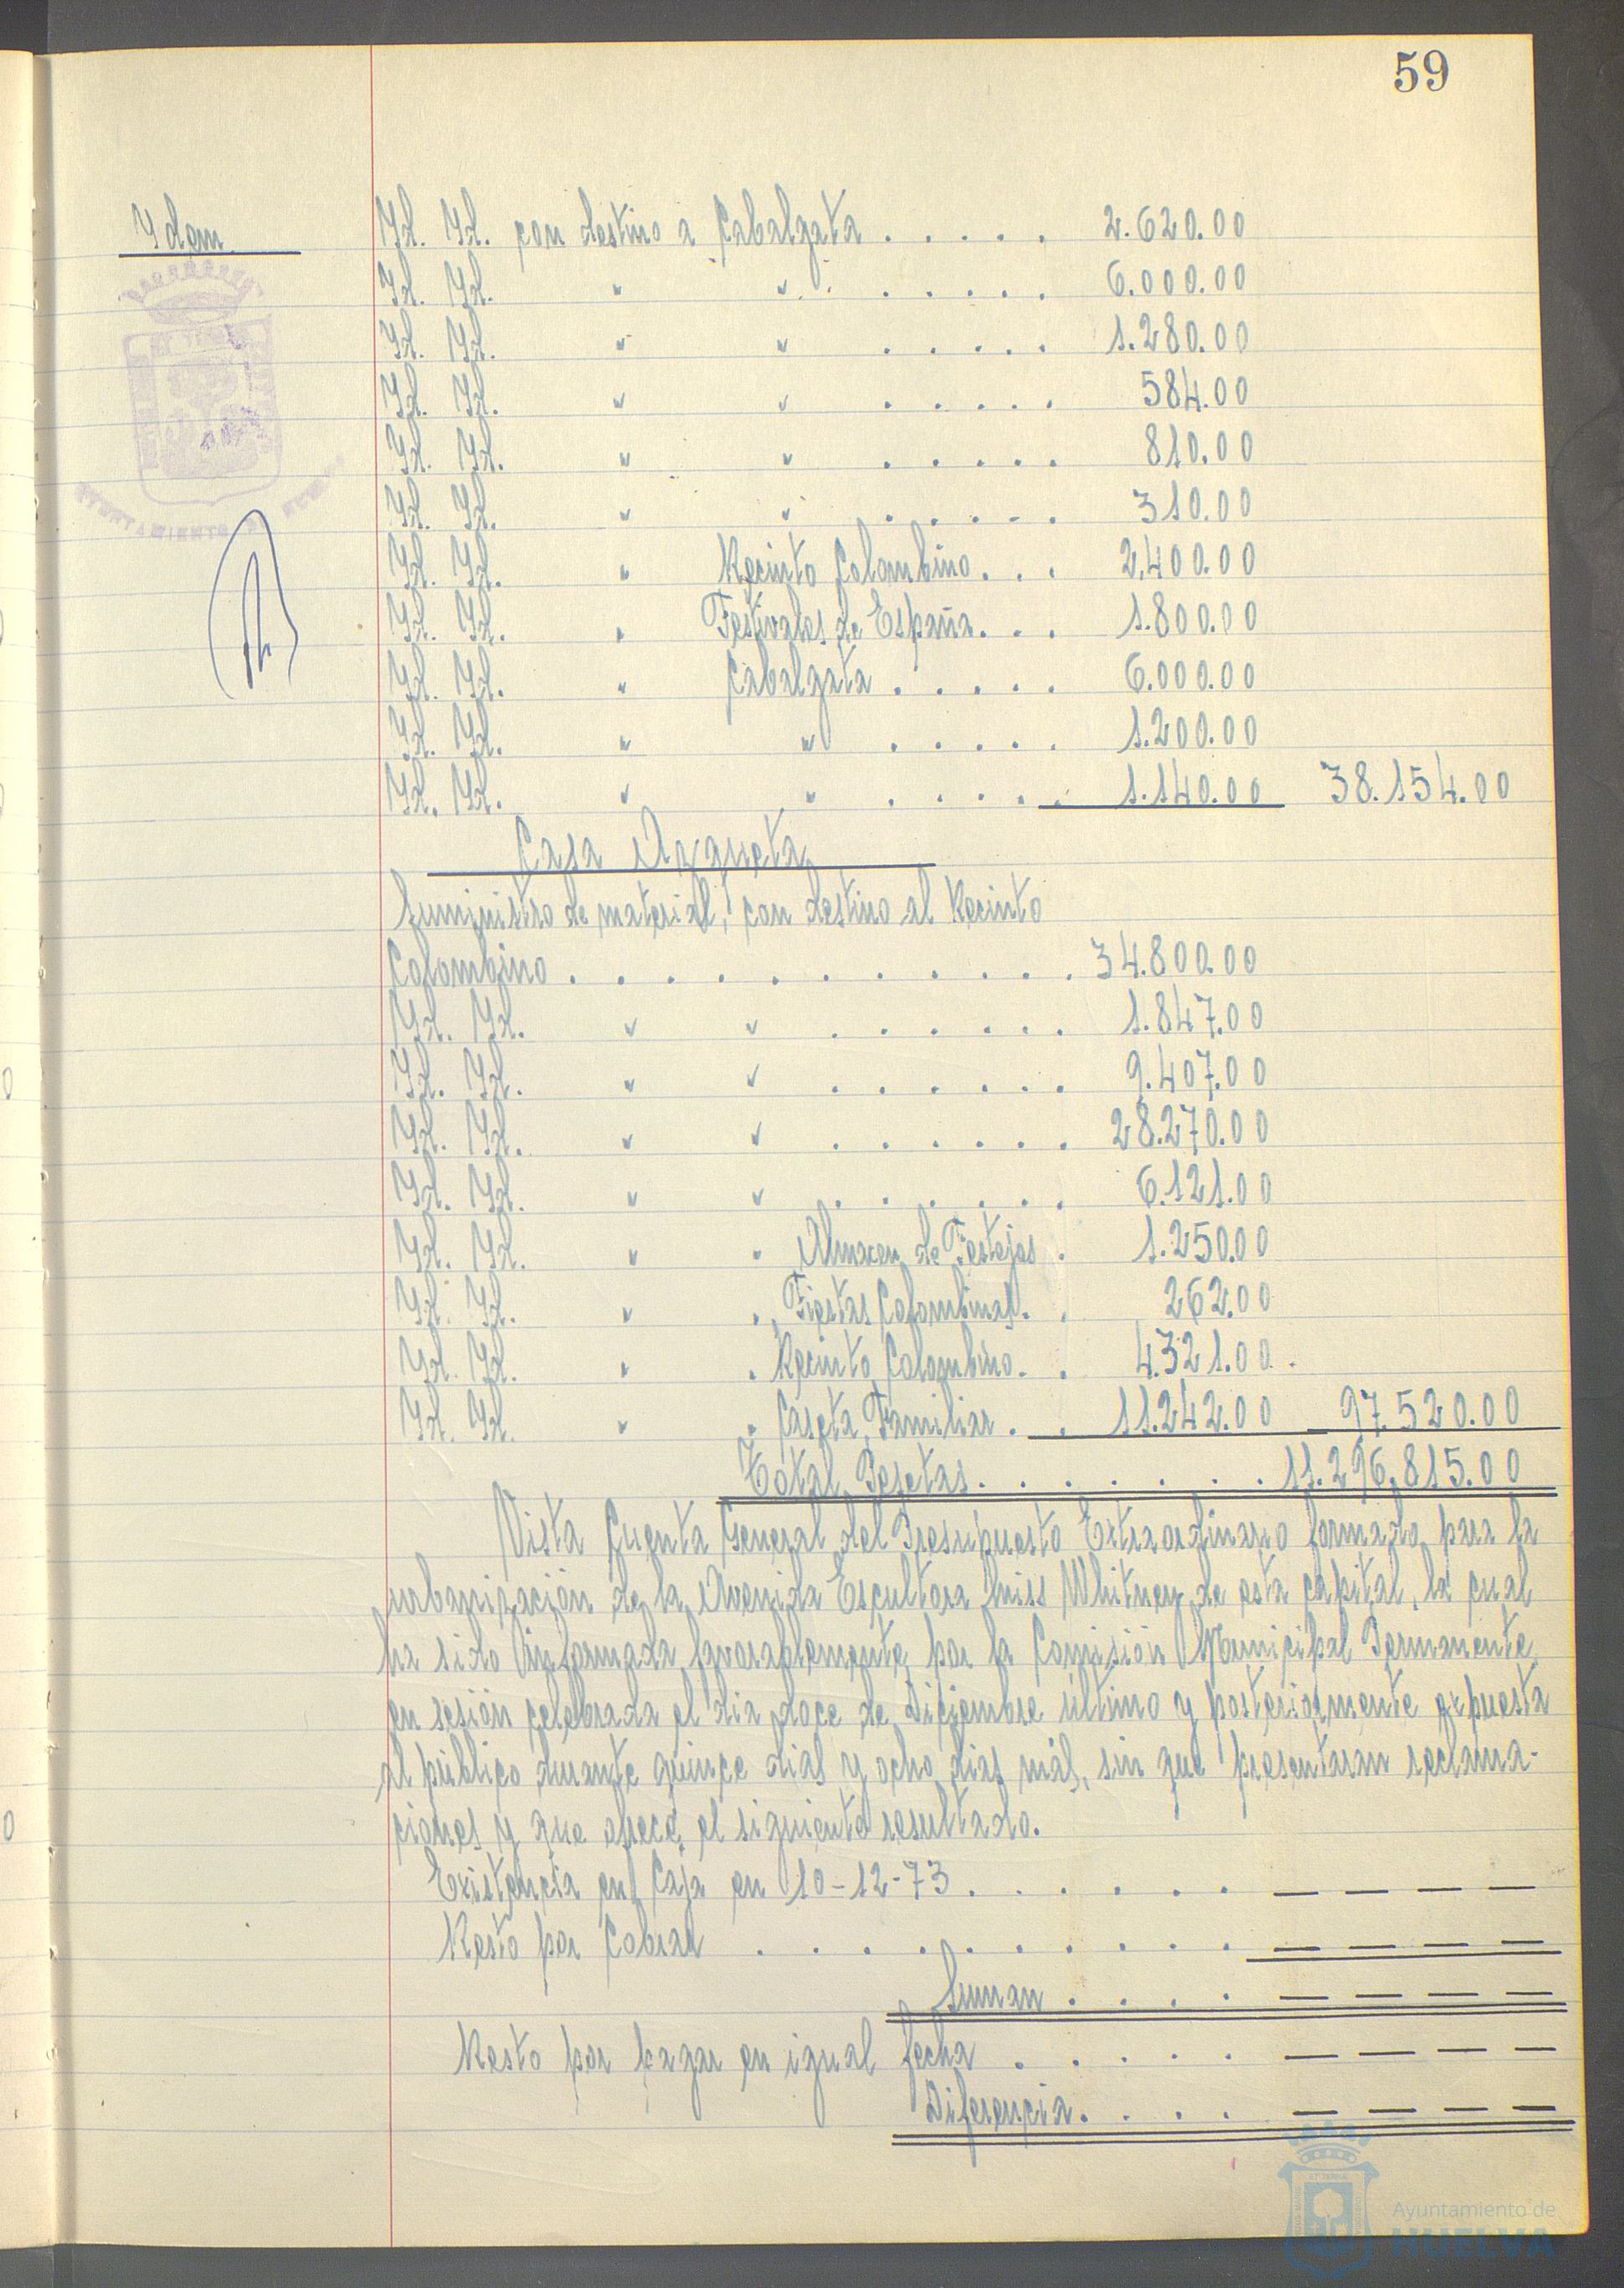 59
Idem
Id. Id. con destino a Cabalgata . . . . . 2.620.00
Id. Id. " " . . . . . 6.000.00
Id. Id. " " . . . . . 1.280.00
Id. Id. " " . . . . . 584.00
Id. Id. " " . . . . . 810.00
Id. Id. " " . . . . . 310.00
Id. Id. " Recinto Colombino. . . 2.400.00
Id. Id. " Festivales de España. . . 1.800.00
Id. Id. " Cabalgata . . . . . 6.000.00
Id. Id. " " . . . . . 1.200.00
Id. Id. " " . . . . . 1.140.00 38.154.00
Casa Azqueta
Suministro de material, con destino al Recinto
Colombino . . . . . . . . . . . 34.800.00
Id. Id. " " . . . . . . 1.847.00
Id. Id. " " . . . . . . 9.407.00
Id. Id. " " . . . . . . 28.270.00
Id. Id. " " . . . . . . 6.121.00
Id. Id. " " Almacen de Festejos . 1.250.00
Id. Id. " " Fiestas Colombinas. . 262.00
Id. Id. " " Recinto Colombino. . 4.321.00
Id. Id. " " Caseta Familiar . . 11.242.00 97.520.00
Total Pesetas. . . . . . . 11.296.815.00
Vista Cuenta General del Presupuesto Extraordinario formado para la
urbanización de la Avenida Escultora Miss Whitney de esta capital, la cual
ha sido informada favorablemente por la Comisión Municipal Permanente
en sesión celebrada el dia doce de Diciembre último y posteriormente expuesta
al público durante quince dias y ocho dias más, sin que presentaran reclama-
ciones y que ofrece el siguiente resultado.
Existencia en Caja en 10-12-73 . . . . . . — — — —
Resto por Cobrar . . . . . . . . . . — — — —
Suman . . . . — — — —
Resto por pagar en igual fecha . . . . . — — — —
Diferencia. . . . — — — —
AYUNTAMIENTO DE HUELVA
Ayuntamiento de
HUELVA